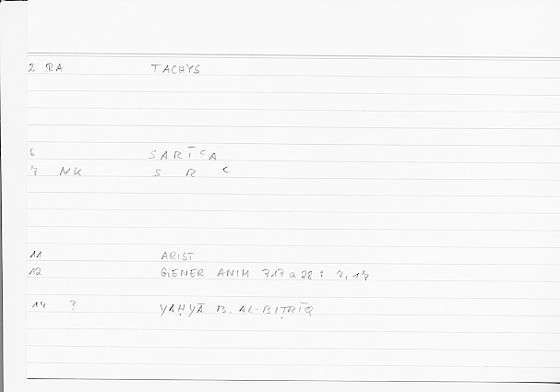 2 RA TACHYS
6 SARĪʿA
7 NK S R ʿ
11 ARIST
12 GENER ANIM 717 a 28 : 7, 17
14 ? YAḤYĀ B. AL-BIṬRĪQ